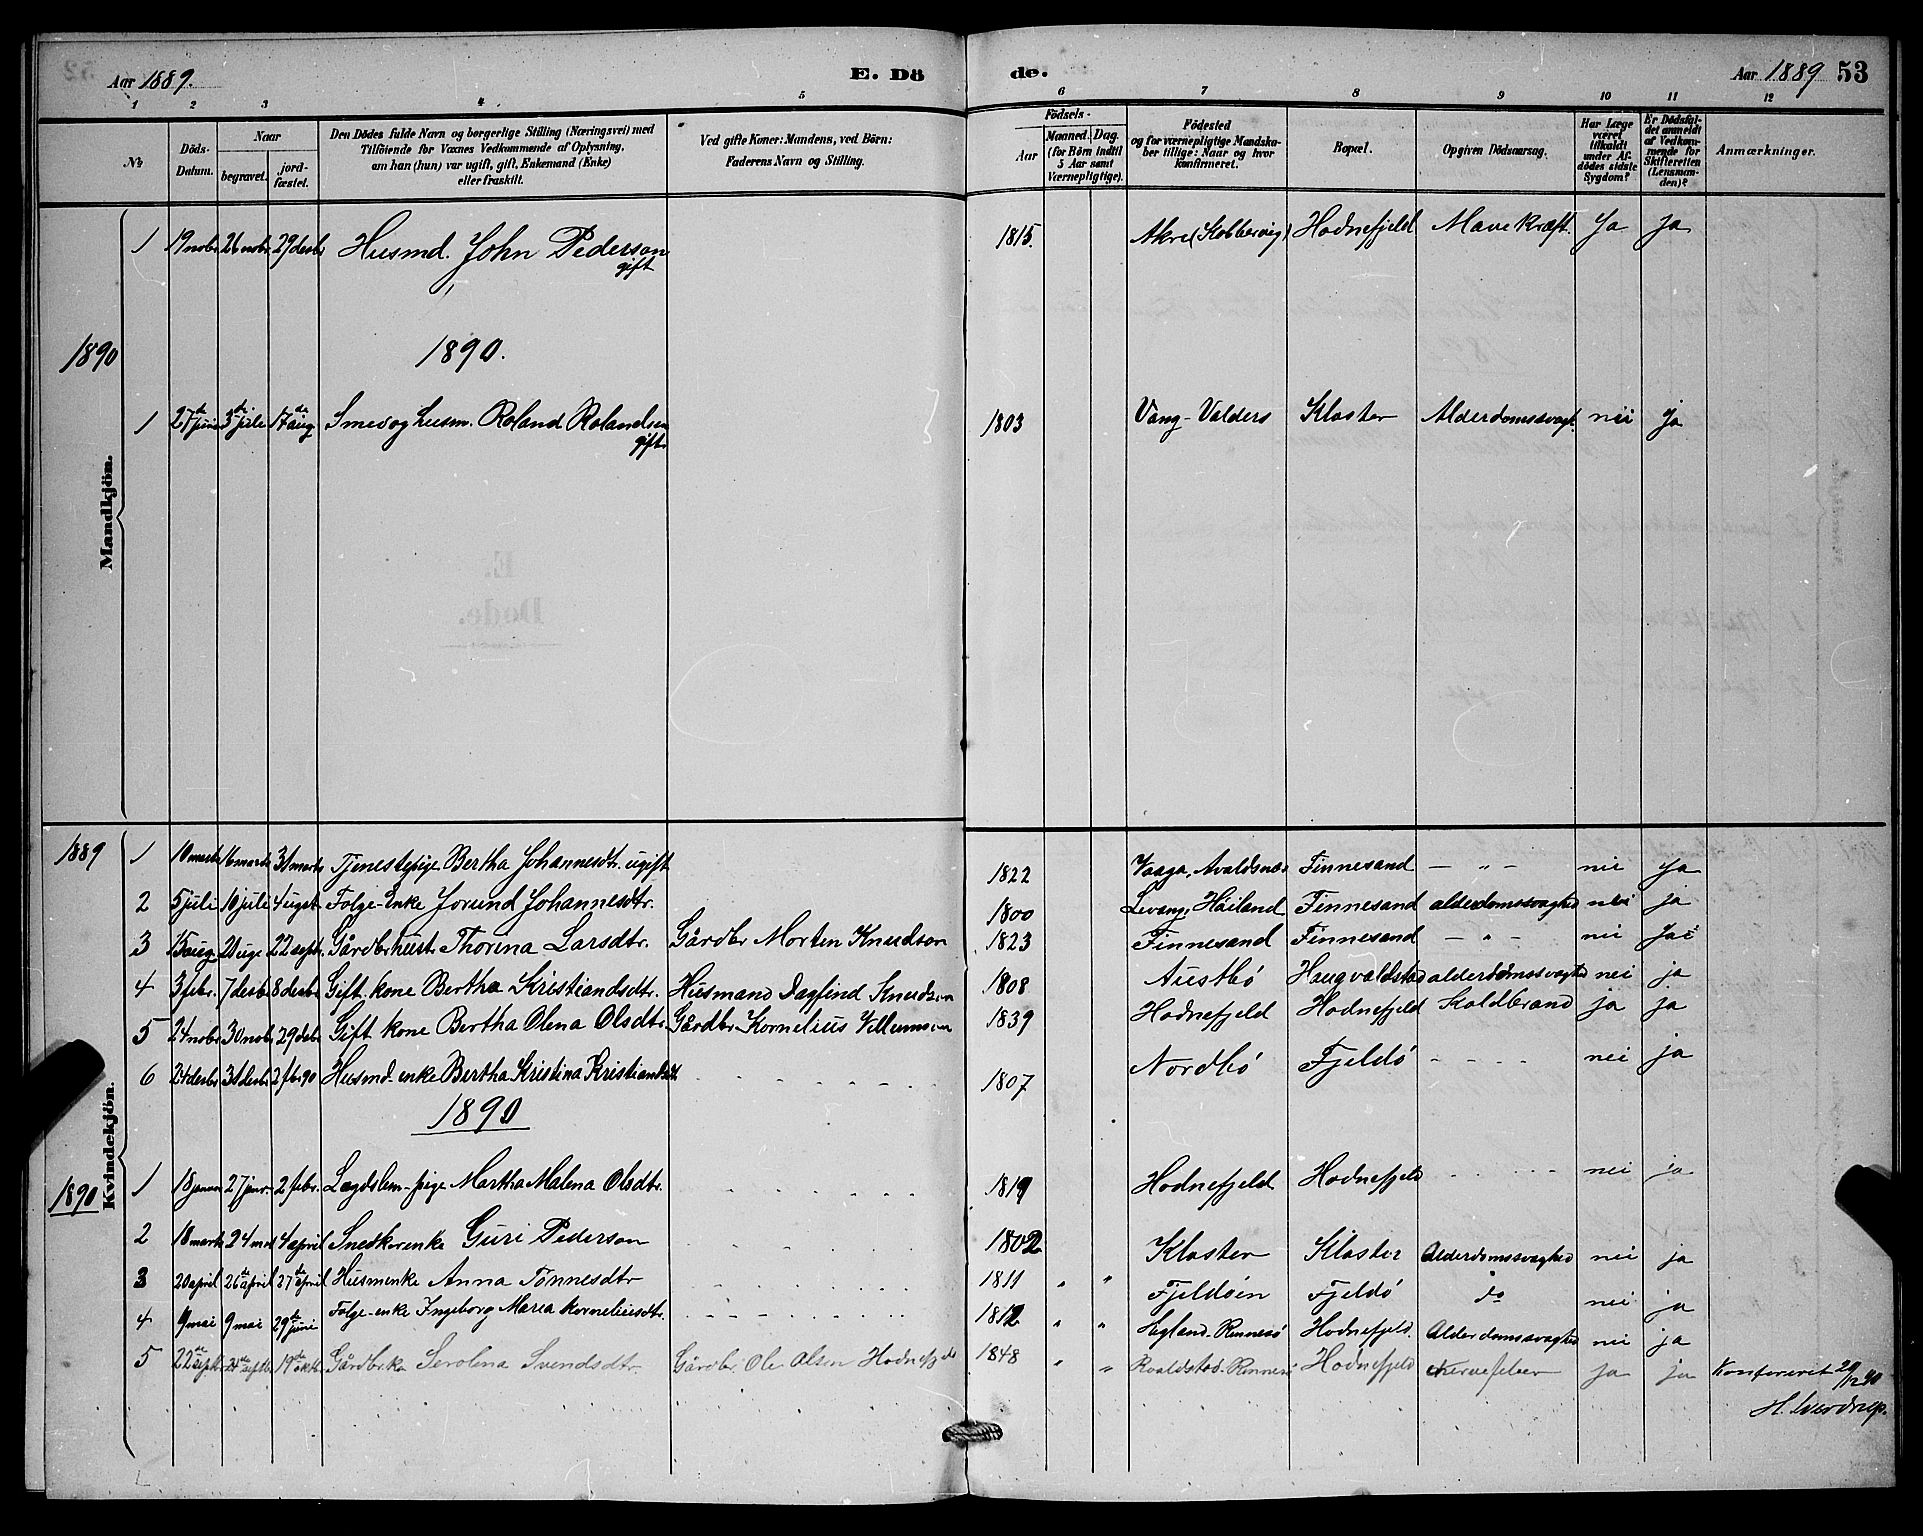 Aar 1889.
E. Dö
de.
Aar 1889 53
1 2 3 4 5 6 7 8 9 10 11 12
No
Döds-Datum.
Naar
begravet.
jord-fæstet.
Den Dödes fulde Navn og borgerlige Stilling (Næringsvei) med
Tilföiende for Voxnes Vedkommende af Oplysning,
om han (hun) var ugift, gift, Enkemand (Enke)
eller fraskilt.
Ved gifte Koner: Mandens, ved Börn:
Faderens Navn og Stilling.
Födsels-
Aar
Maaned. Dag.
(for Börn indtil
5 Aar samt
Værnepligtige).
Födested
og for værnepligtige Mandska-
ber tillige: Naar og hvor
konfirmeret.
Bopæl.
Opgiven Dödsaarsag.
Har Læge
været
tilkaldt
under Af-
dödes sidste
Sygdom?
Er Dödsfal-
det anmeldt
af Vedkom-
mende for
Skifteretten
(Lensman-
den)?
Anmærkninger.
Mandkjön.
1 19 nobr 26 nobr 29 desbr Husmd. John Pederson 1815. Akre (Kobbervig) Hodnefjeld Mavekræft. Ja ja
gift
1890
1890.
1 27de juni 3de juli 17de aug Smed og husm. Roland Rolandsen 1803 Vang-Valders Kloster Alderdomssvagt. nei ja
gift
Kvindekjön.
1889 1 10 marts 16 marts 31 marts Tjenestepige Bertha Johannesdtr. ugift 1822 Vaaga, Avaldsnæs Finnesand — " — nei ja
2 5 juli 10 juli 4 ugst Folge-Enke Jorund Johannesdtr. 1800 Høiland Finnesand alderdomssvaghed nei ja
3 15 aug. 22 septr. Gårdbrhust. Thorina Larsdtr. Gårdbr Morten Knudson 1823 Finnesand Finnesand — " — nei Ja
4 3 febr. 7 desbr 8 desbr Gift kone Bertha Kristiansdtr. Husmand Dagfind Knudson 1808 Austbö Haugvaldstad alderdomssvaghed nei ja
5 24 nobr 30 nobr 29 debr Gift kone Bertha Olena Olsdtr. Gårdbr Kornelius Villumson 1839 Hodnefjeld Hodnefjeld Koldbrand ja ja
6 24 desbr 31 desbr 2 fbr 90 Husmd-enke Bertha Kristina Kristiansdt 1807 Nordbö Fjeldö - - - - nei ja
1890
1890 1 18 januar 27 jnr. 2 febr. Lægdslem-pige Martha Malena Olsdtr. 1819 Hodnefjeld Hodnefjeld nei ja
2 18 marts 24 mrs 4 april Snedkerenke Guri Pederson 1802 Kloster Kloster Alderdomssvaghed nei ja
3 20 april 26de april 27de april Husmenke Anna Tönnesdtr 1811 " " Fjeldöen Fjeldö do nei ja
4 9 mai 9 mai 29de juni Folge-enke Ingeborg Maria Korneliusdtr. 1812 " " Egland. Rennesö Hodnefjeld. Alderdomsvaghed nei ja
5 22de sept. septb 19de oktb Gårdbrke Serolena Svendsdtr Gårdbr Ole Olsen Hodnefjeld 1848 " " Roaldstad. Rennesö Hodnefjeld Nervefeber ja ja Konfereret 29/12 90